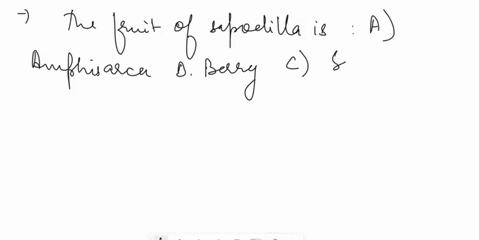 → The fruit of sapodilla is : A)
Amphisarca B. Berry C) S